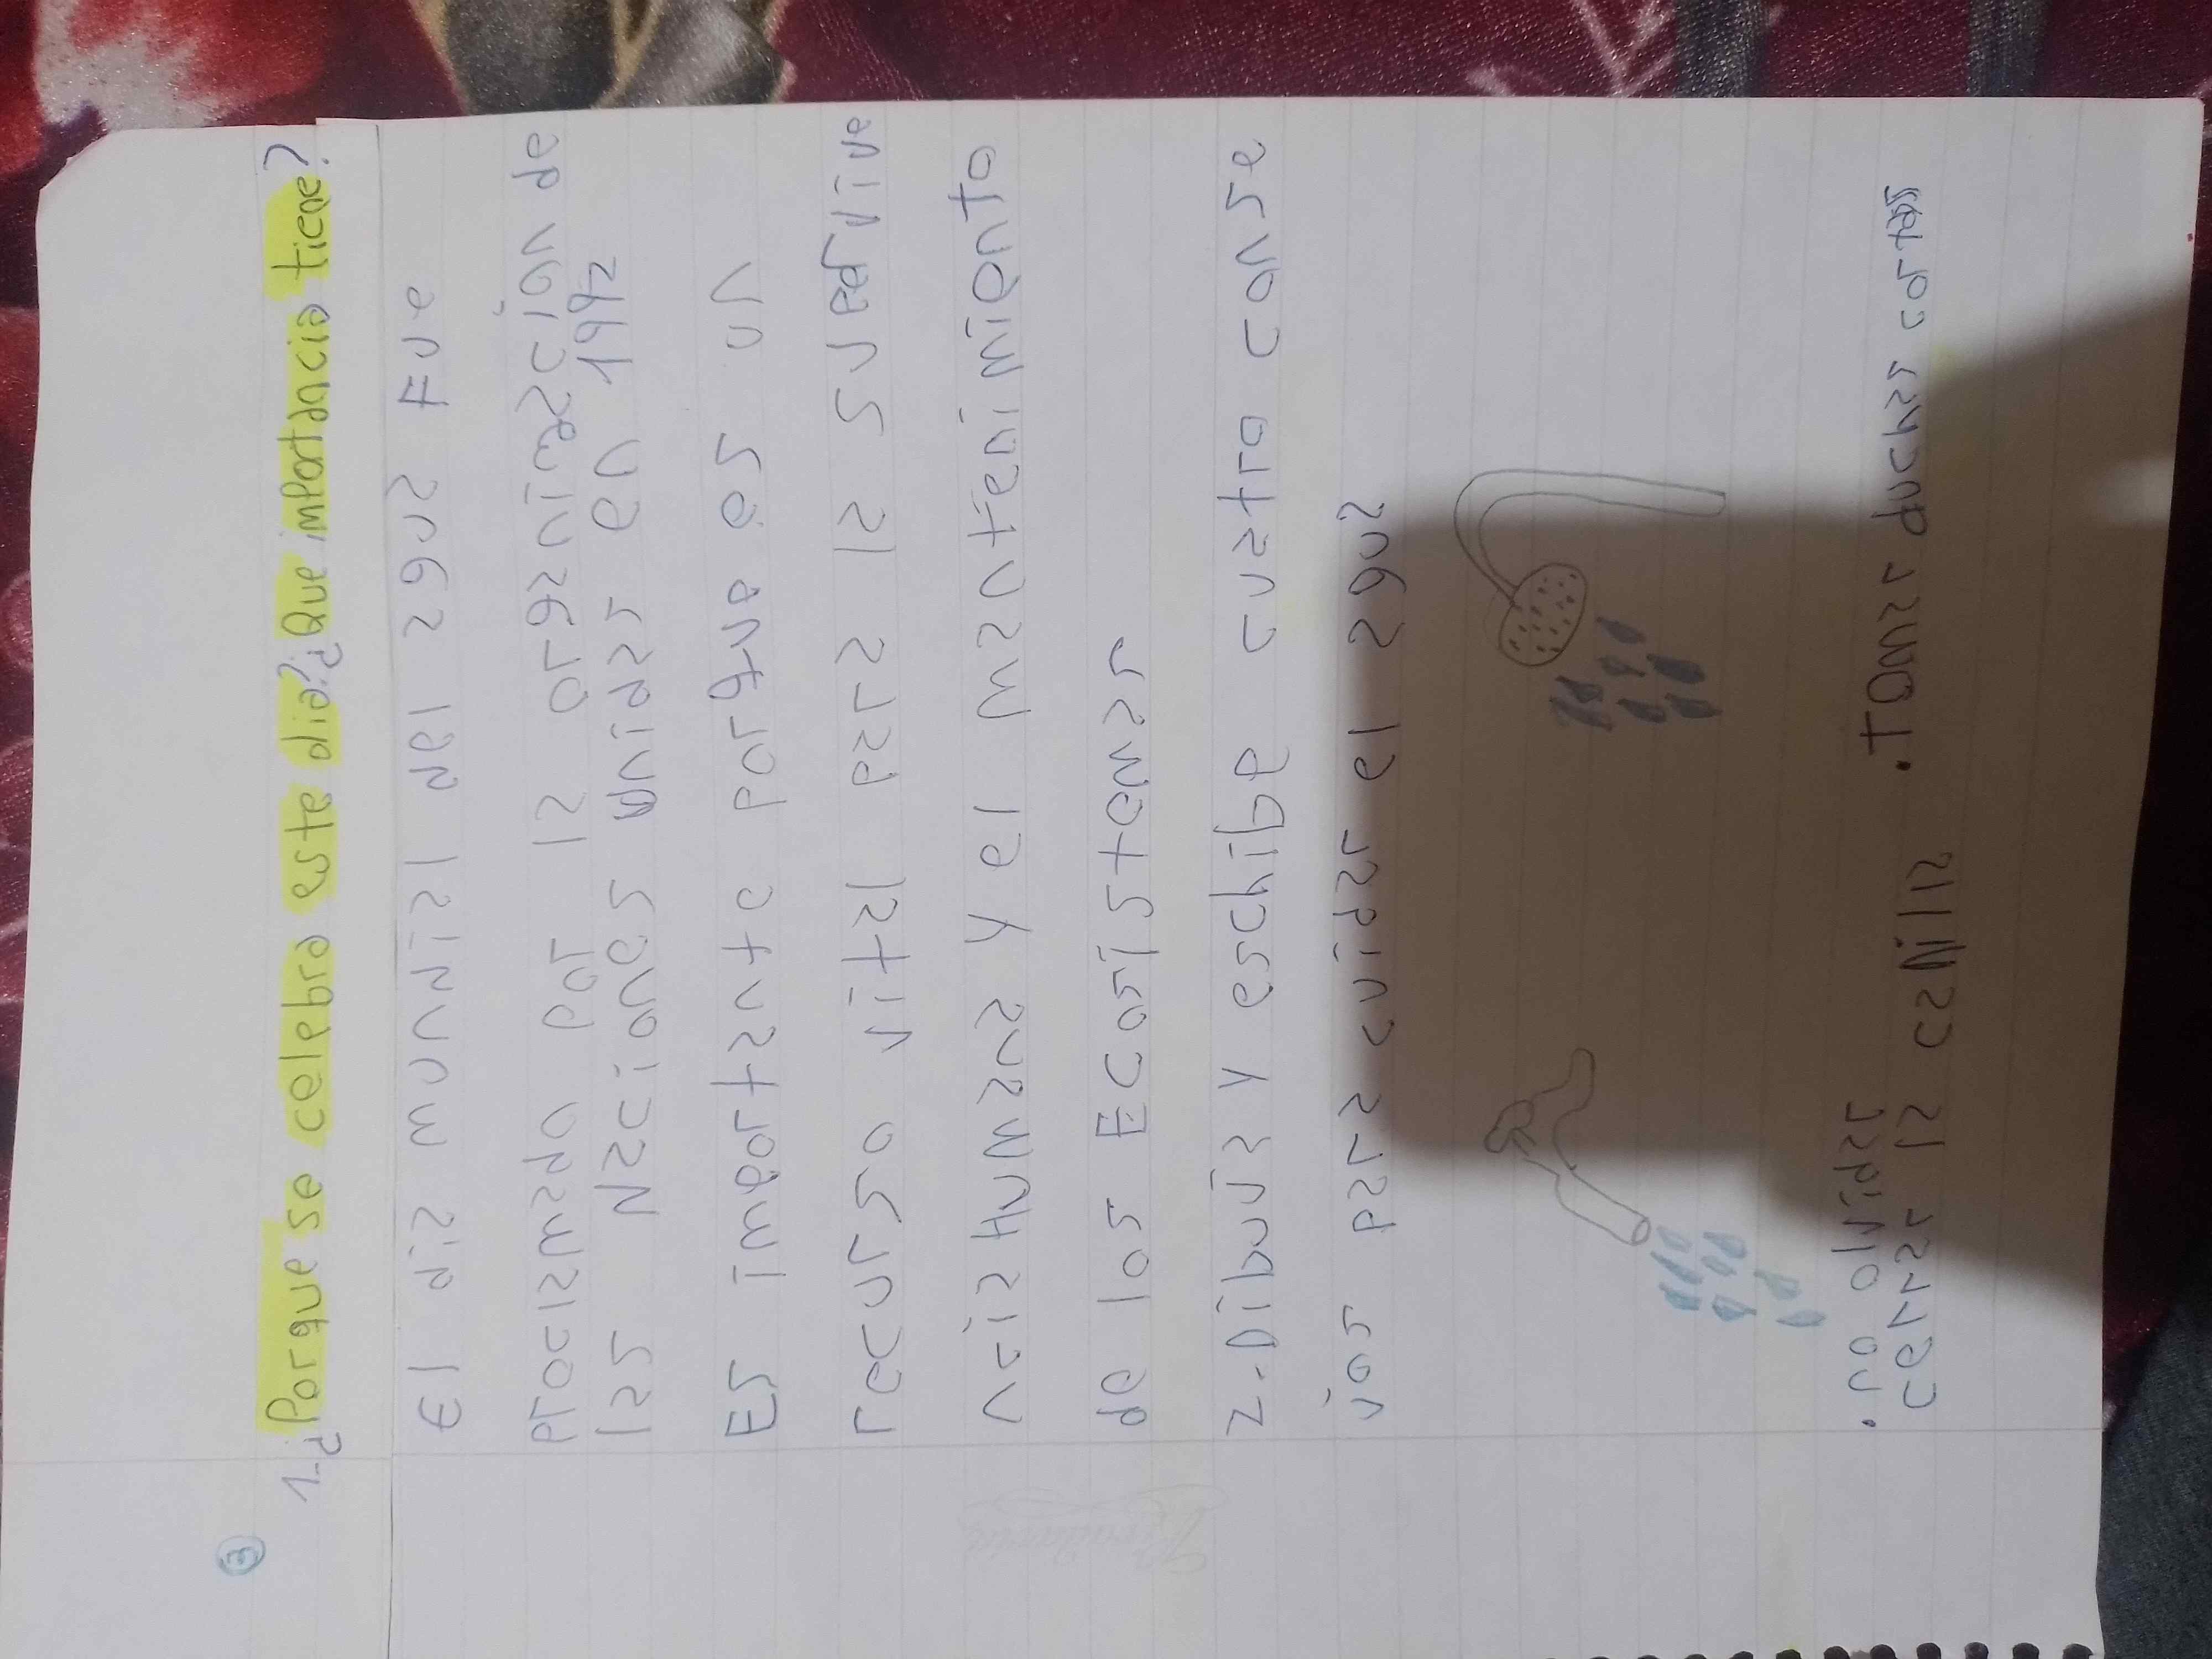 3
1-¿Porque se celebra este dia?¿Que importancia tiene?
El dia mundial del agua Fue
proclamado por la organización de
las Naciones Unidas en 1992
Es importante porque es un
recurso vital para la supervive
ncia Humana y el mantenimiento
de los Ecosistemas
2-.Dibuja y eschibe cuatro conse
jos para cuidar el agua
.no olvidar
cerrar la canilla
.Tomar duchas cortas